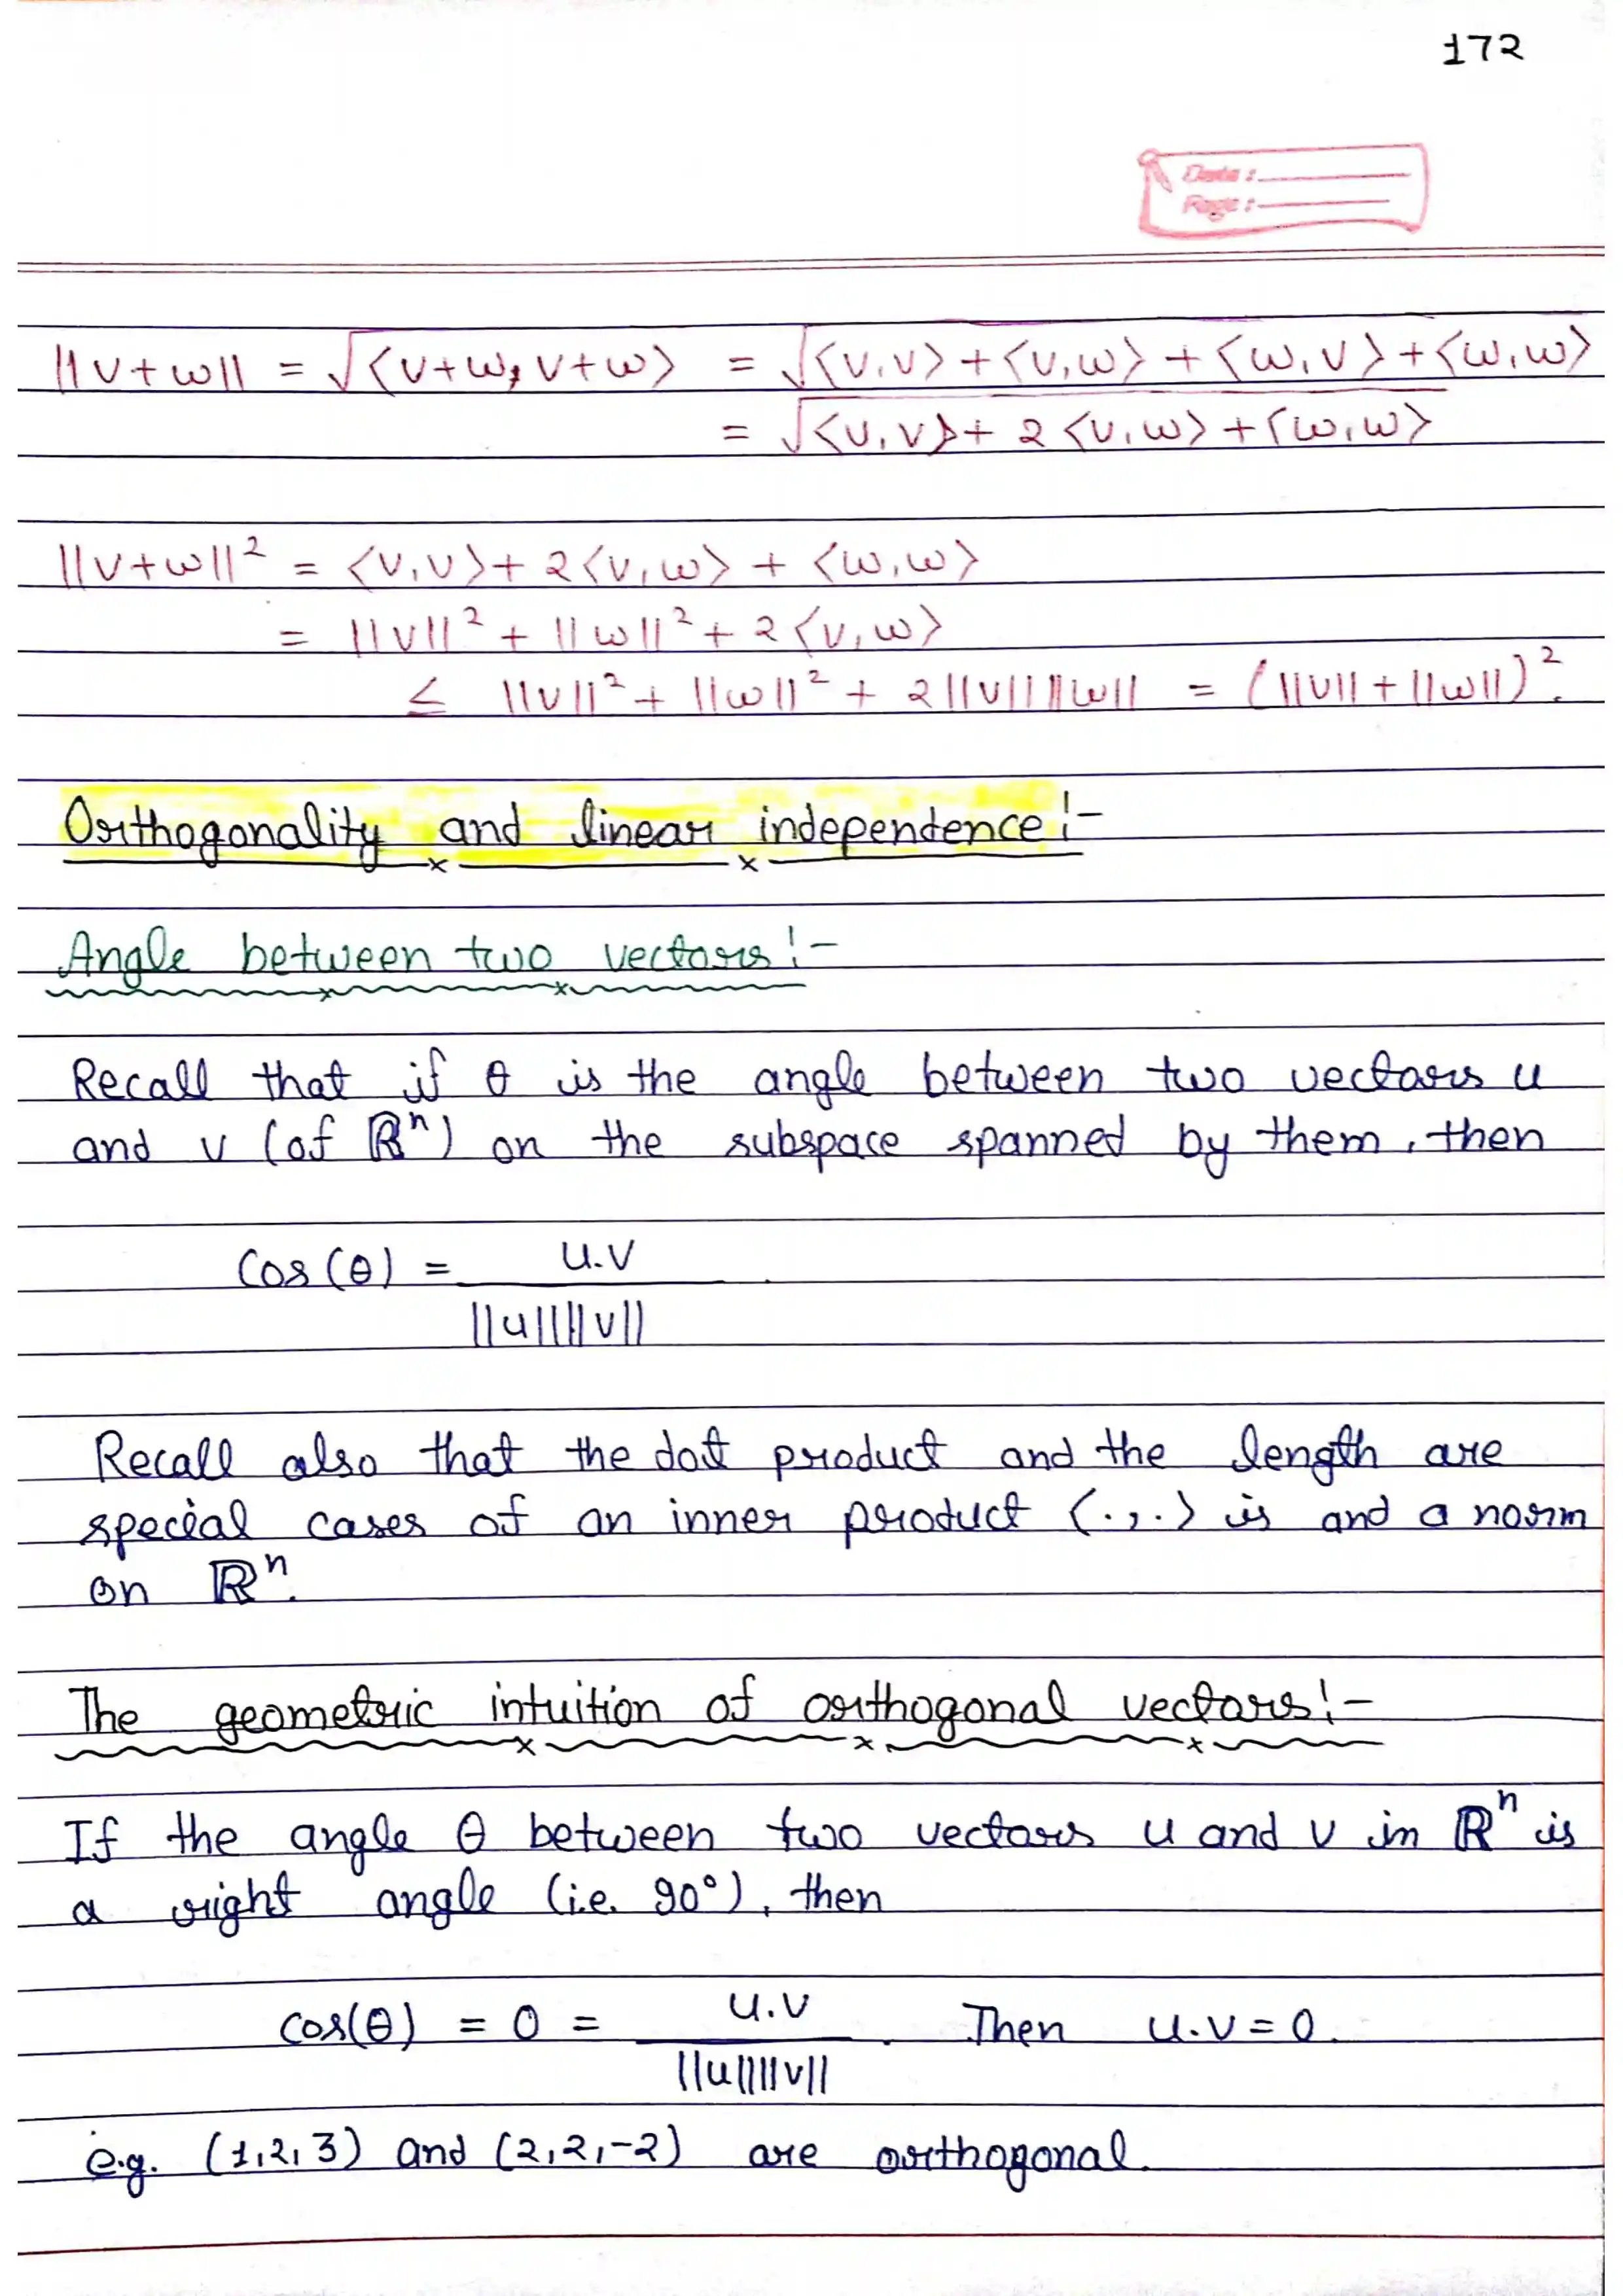 172
Date :
Page :
||v+w|| = √⟨v+w, v+w⟩ = √⟨v,v⟩+⟨v,w⟩+⟨w,v⟩+⟨w,w⟩
= √⟨v,v⟩+ 2⟨v,w⟩+⟨w,w⟩
||v+w||² = ⟨v,v⟩+ 2⟨v,w⟩ + ⟨w,w⟩
= ||v||² + ||w||² + 2⟨v,w⟩
≤ ||v||² + ||w||² + 2||v|| ||w|| = (||v|| + ||w||)².
Orthogonality and linear independence:-
Angle between two vectors:-
Recall that if θ is the angle between two vectors u
and v (of ℝⁿ) on the subspace spanned by them, then
Cos(θ) = u.v
||u||||v||
Recall also that the dot product and the length are
special cases of an inner product ⟨.,.⟩ is and a norm
on ℝⁿ.
The geometric intuition of orthogonal vectors:-
If the angle θ between two vectors u and v in ℝⁿ is
a right angle (i.e. 90°), then
cos(θ) = 0 = u.v . Then u.v = 0.
||u||||v||
e.g. (1,2,3) and (2,2,-2) are orthogonal.